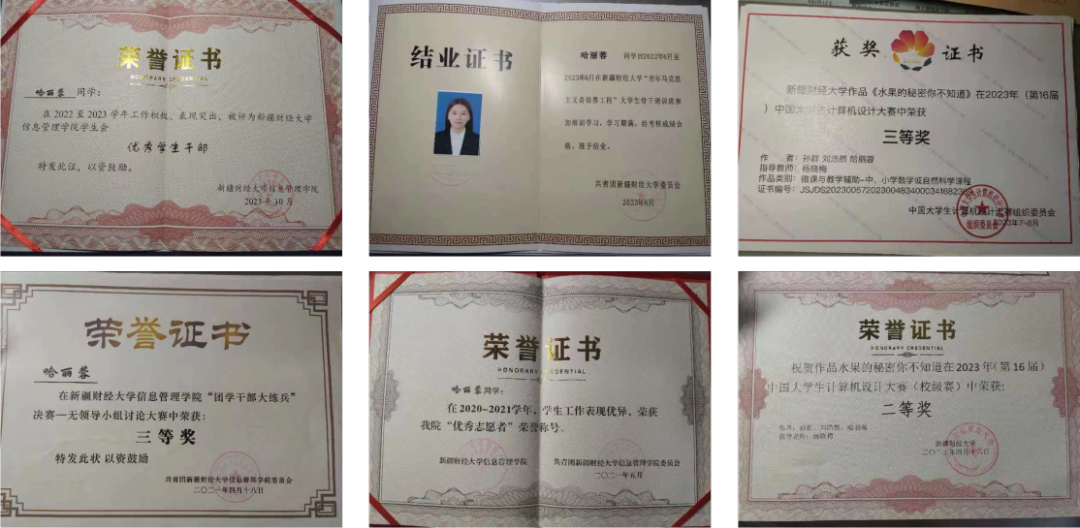 荣誉证书
HONORARY CREDENTIAL
哈丽蓉 同学:
在 2022 至 2023 学年工作积极、表现突出,被评为新疆财经大学
信息管理学院学生会
优秀学生干部
特发此证,以资鼓励。
新疆财经大学信息管理学院
2023年10月
结业证书
哈丽蓉 同学自2022年6月至
2023年6月在新疆财经大学“青年马克思
主义者培养工程”大学生骨干培训班参
加培训学习,学习期满,经考核成绩合
格,准予结业。
共青团新疆财经大学委员会
2023年6月
获奖 证书
新疆财经大学作品《水果的秘密你不知道》在2023年(第16届
)中国大学生计算机设计大赛中荣获
三等奖
作 者:孙群 刘浩然 哈丽蓉
指导教师:杨晓梅
作品类别:微课与教学辅助-中、小学数学或自然科学课程
证书编号:
中国大学生计算机设计大赛组织委员会
2023年7-8月
组织委员会
荣誉证书
哈丽蓉
在新疆财经大学信息管理学院“团学干部大练兵”
决赛—无领导小组讨论大赛中荣获:
三等奖
特发此状 以资鼓励
共青团新疆财经大学信息管理学院委员会
二〇二一年四月十八日
荣誉证书
HONORARY CREDENTIAL
哈丽蓉同学:
在2020-2021学年,学生工作表现优异,荣获
我院“优秀志愿者”荣誉称号。
新疆财经大学信息管理学院 共青团新疆财经大学信息管理学院委员会
二〇二一年五月
荣誉证书
HONORARY CREDENTIAL
祝贺作品水果的秘密你不知道在2023年(第16届)
中国大学生计算机设计大赛(校级赛)中荣获:
二等奖
新疆财经大学
二〇二三年四月十八日